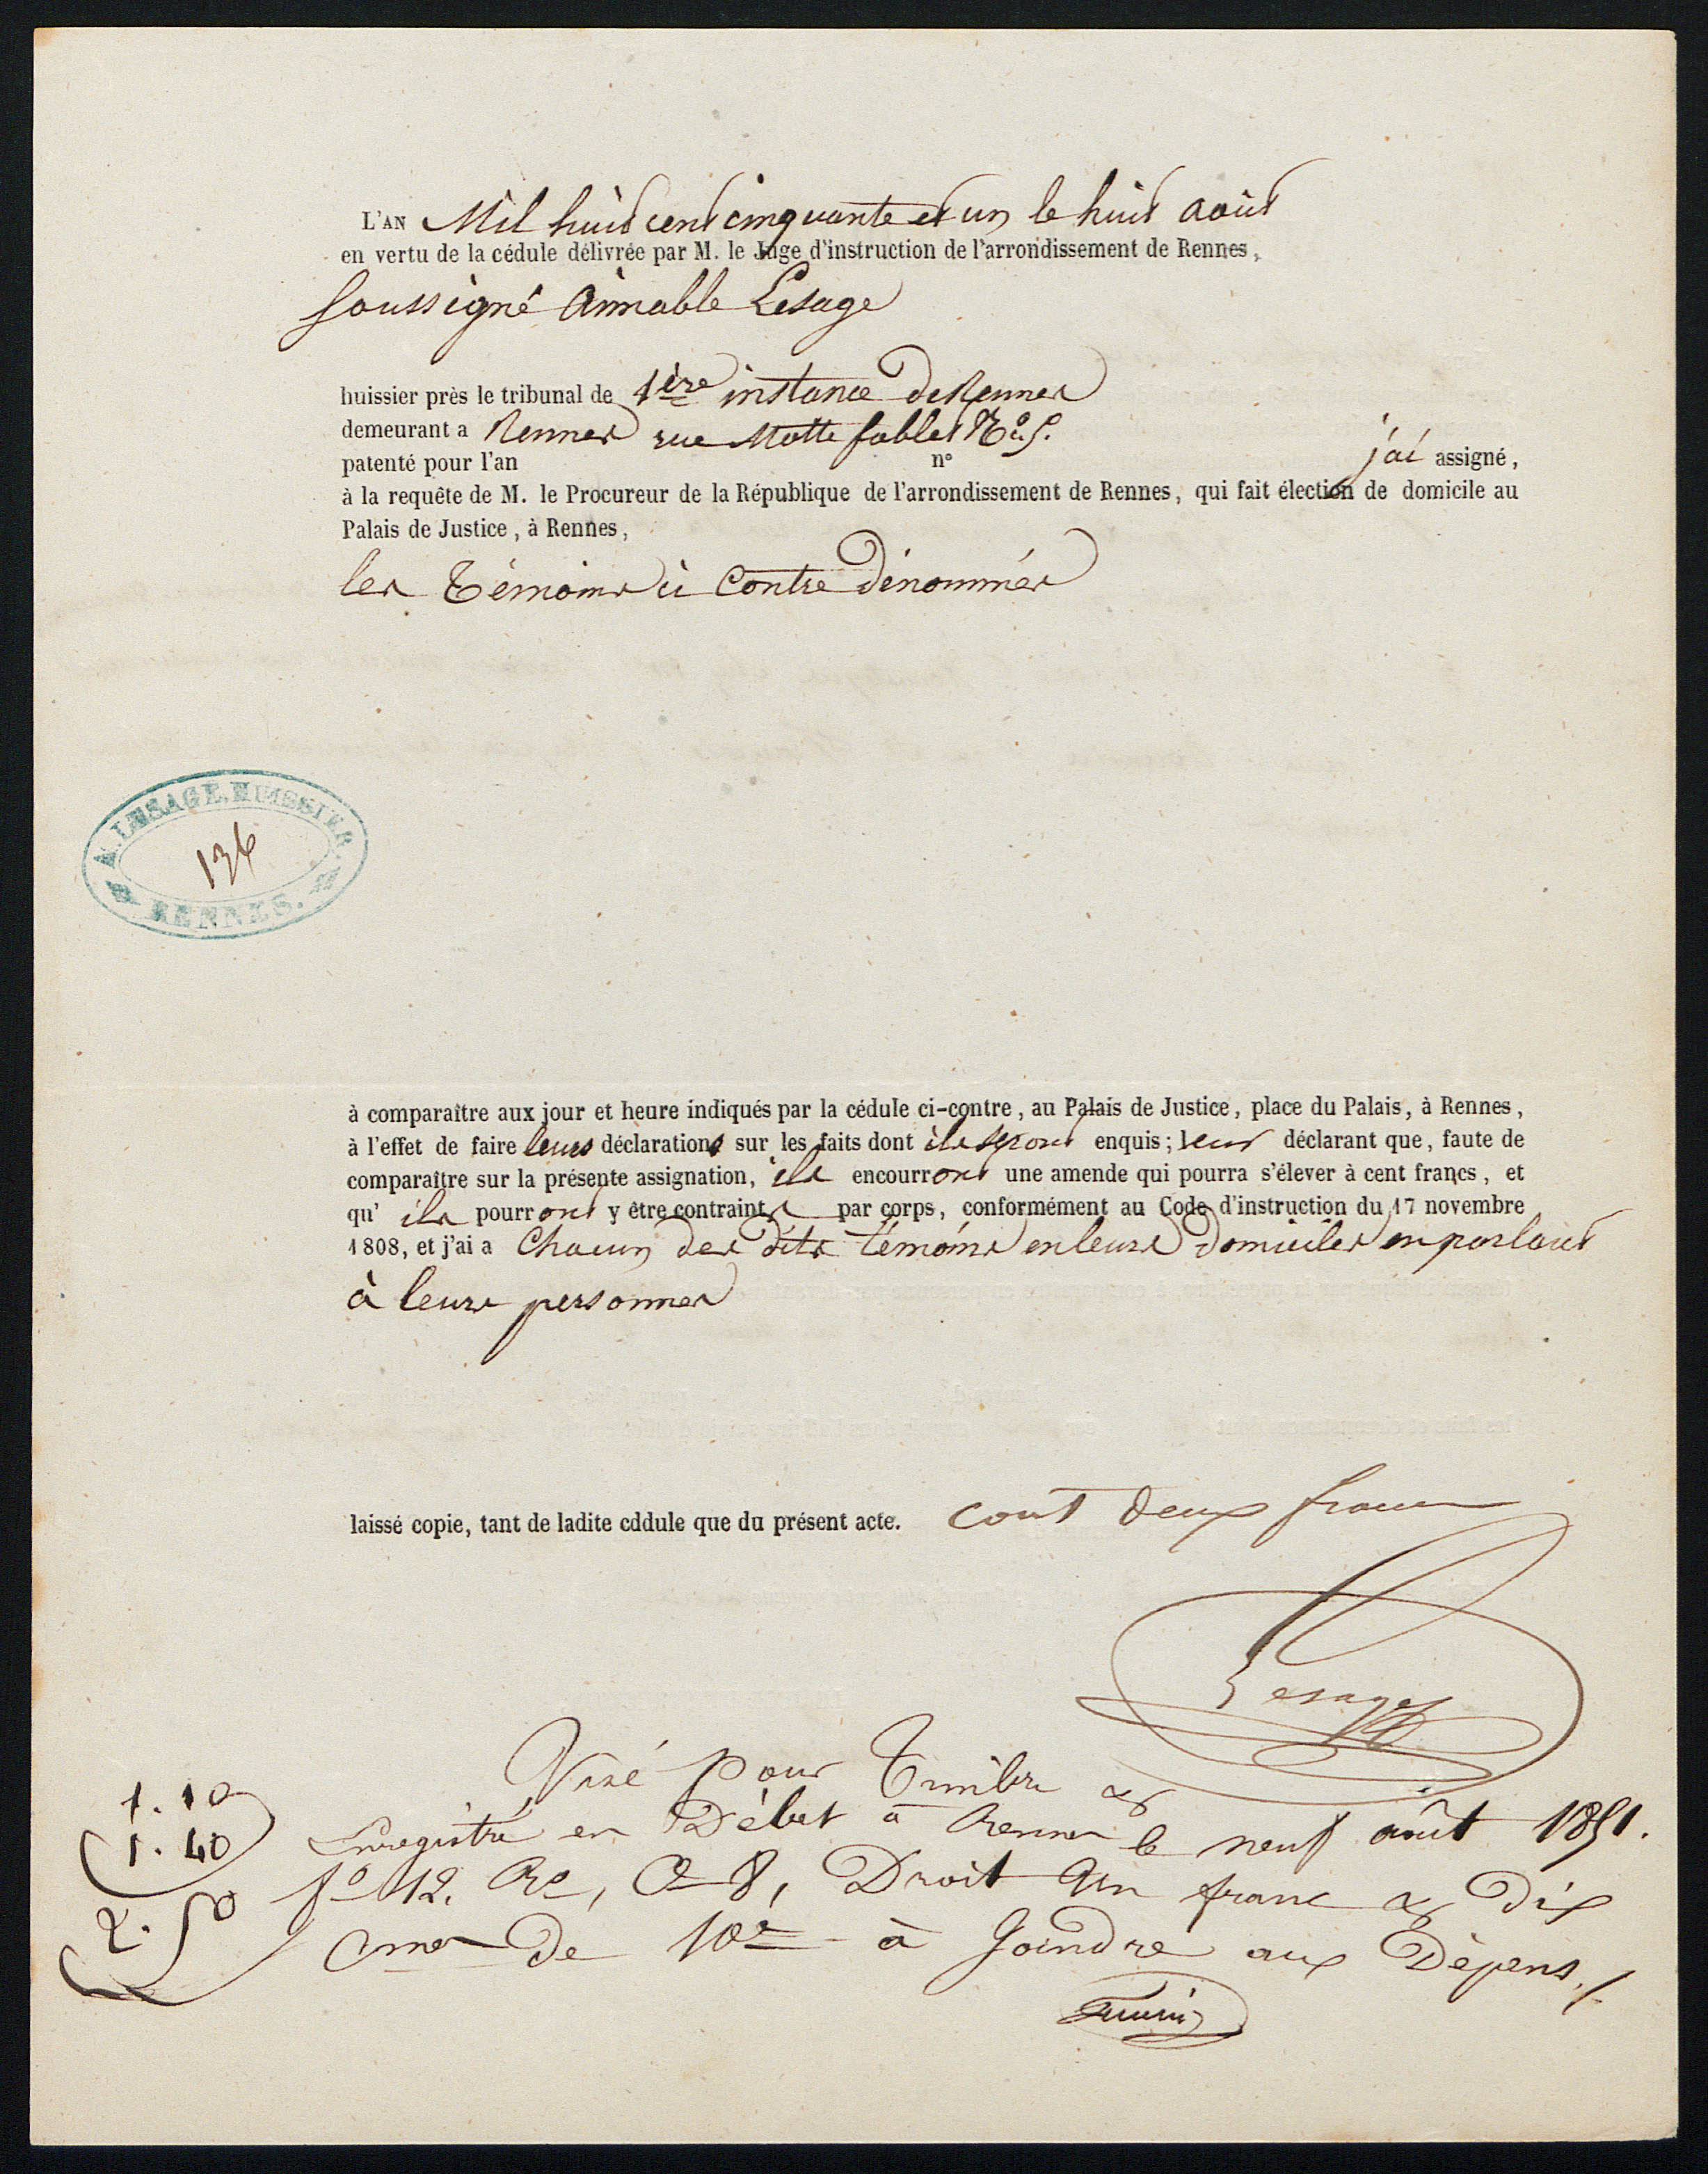 L'AN Mil huit cent cinquante et un le huit août
en vertu de la cédule délivrée par M. le Juge d'instruction de l'arrondissement de Rennes,
Soussigné Aimable Lesage
huissier près le tribunal de 1ère instance de Rennes
demeurant a Rennes rue Motte fablet
patenté pour l'an n° j'ai assigné,
à la requête de M. le Procureur de la République de l'arrondissement de Rennes, qui fait élection de domicile au
Palais de Justice, à Rennes,
les Témoins ci Contre dénommés
A. LESAGE, HUISSIER.
136
RENNES.
à comparaître aux jour et heure indiqués par la cédule ci-contre, au Palais de Justice, place du Palais, à Rennes,
à l'effet de faire leurs déclarations sur les faits dont ils seront enquis; leur déclarant que, faute de
comparaître sur la présente assignation, ils encourront une amende qui pourra s'élever à cent francs, et
qu' ils pourront y être contraints par corps, conformément au Code d'instruction du 17 novembre
1808, et j'ai a Chacun des dits témoins en leurs domiciles en parlant
à leurs personnes
laissé copie, tant de ladite cddule que du présent acte. Cout deux francs
Lesage
Visé pour Timbre &
Enregistré en Débet à Rennes le neuf août 1851.
f° 112. R°, C 8, Droit Un franc & dix
Cmes de 10e à Joindre aux Dépens./.
1.10
1.40
2.50